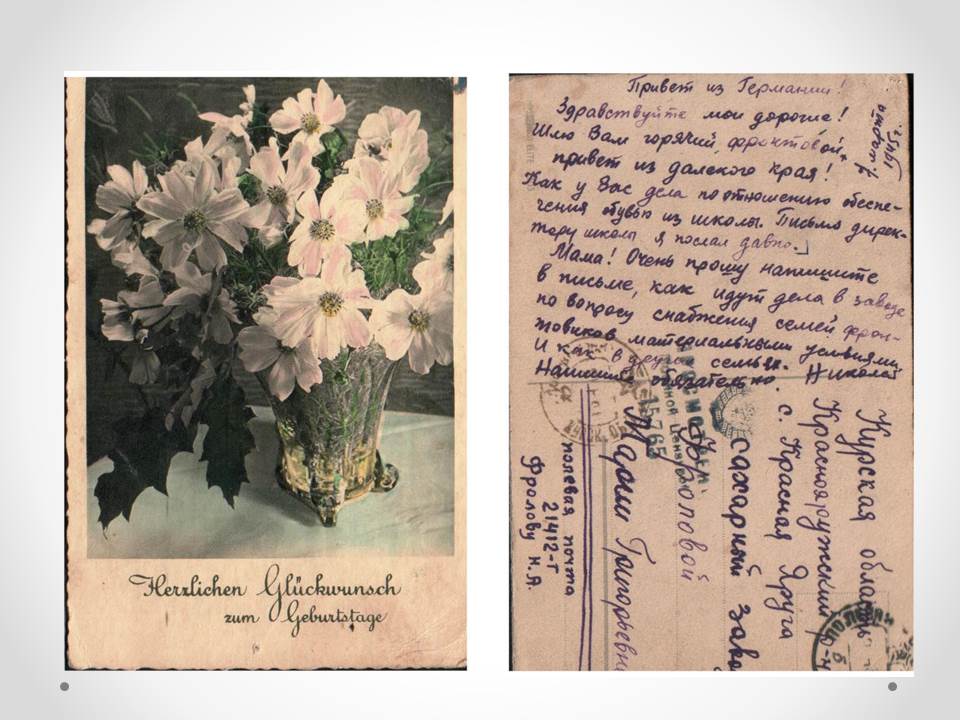 Herzlichen Glückwunsch
zum Geburtstage
Привет из Германии!
Здравствуйте мои дорогие!
Шлю Вам горячий, фронтовой,
привет из далекого края!
Как у Вас дела по отношению обеспе-
чения обувью из школы. Письмо дирек-
тору школы я послал давно.
Мама! Очень прошу напишите
в письме, как идут дела в заводе
по вопросу снабжения семей фрон-
товиков материальными условиями
И как в других семьях.
Напишите обязательно. Николай
7 марта
1945 г.
Курская область
Краснояружский р-н
с. Красная Яруга
сахарный завод
Фроловой
Марии Григорьевне
полевая почта
21412-Т
Фролову Н.А.
Просмотрено
Военной Цензурой
15765